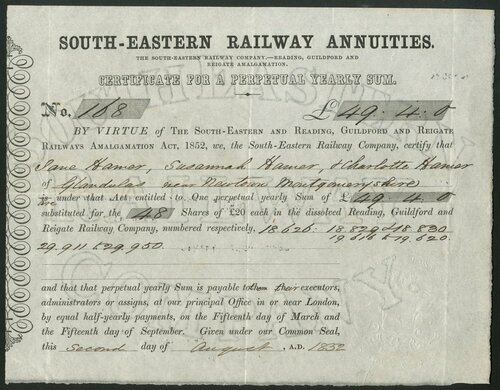 SOUTH-EASTERN RAILWAY ANNUITIES.
THE SOUTH-EASTERN RAILWAY COMPANY.—READING, GUILDFORD AND
REIGATE AMALGAMATION.
CERTIFICATE FOR A PERPETUAL YEARLY SUM.
No. 168 £49.4.0
BY VIRTUE of THE SOUTH-EASTERN AND READING, GUILDFORD AND REIGATE
RAILWAYS AMALGAMATION ACT, 1852, we, the South-Eastern Railway Company, certify that
Jane Hamer, Susannah Hamer, & Charlotte Hamer
of Glandulas near Newtown Montgomeryshire
is under that Act entitled to One perpetual yearly Sum of £49.4.0
substituted for the 48 Shares of £20 each in the dissolved Reading, Guildford and
Reigate Railway Company, numbered respectively, 18626: 18829 & 18830
19616 to 19620
29,911 to 29,950.
and that perpetual yearly Sum is payable to them their executors,
administrators or assigns, at our principal Office in or near London,
by equal half-yearly payments, on the Fifteenth day of March and
the Fifteenth day of September. Given under our Common Seal,
this second day of August, A.D. 1852